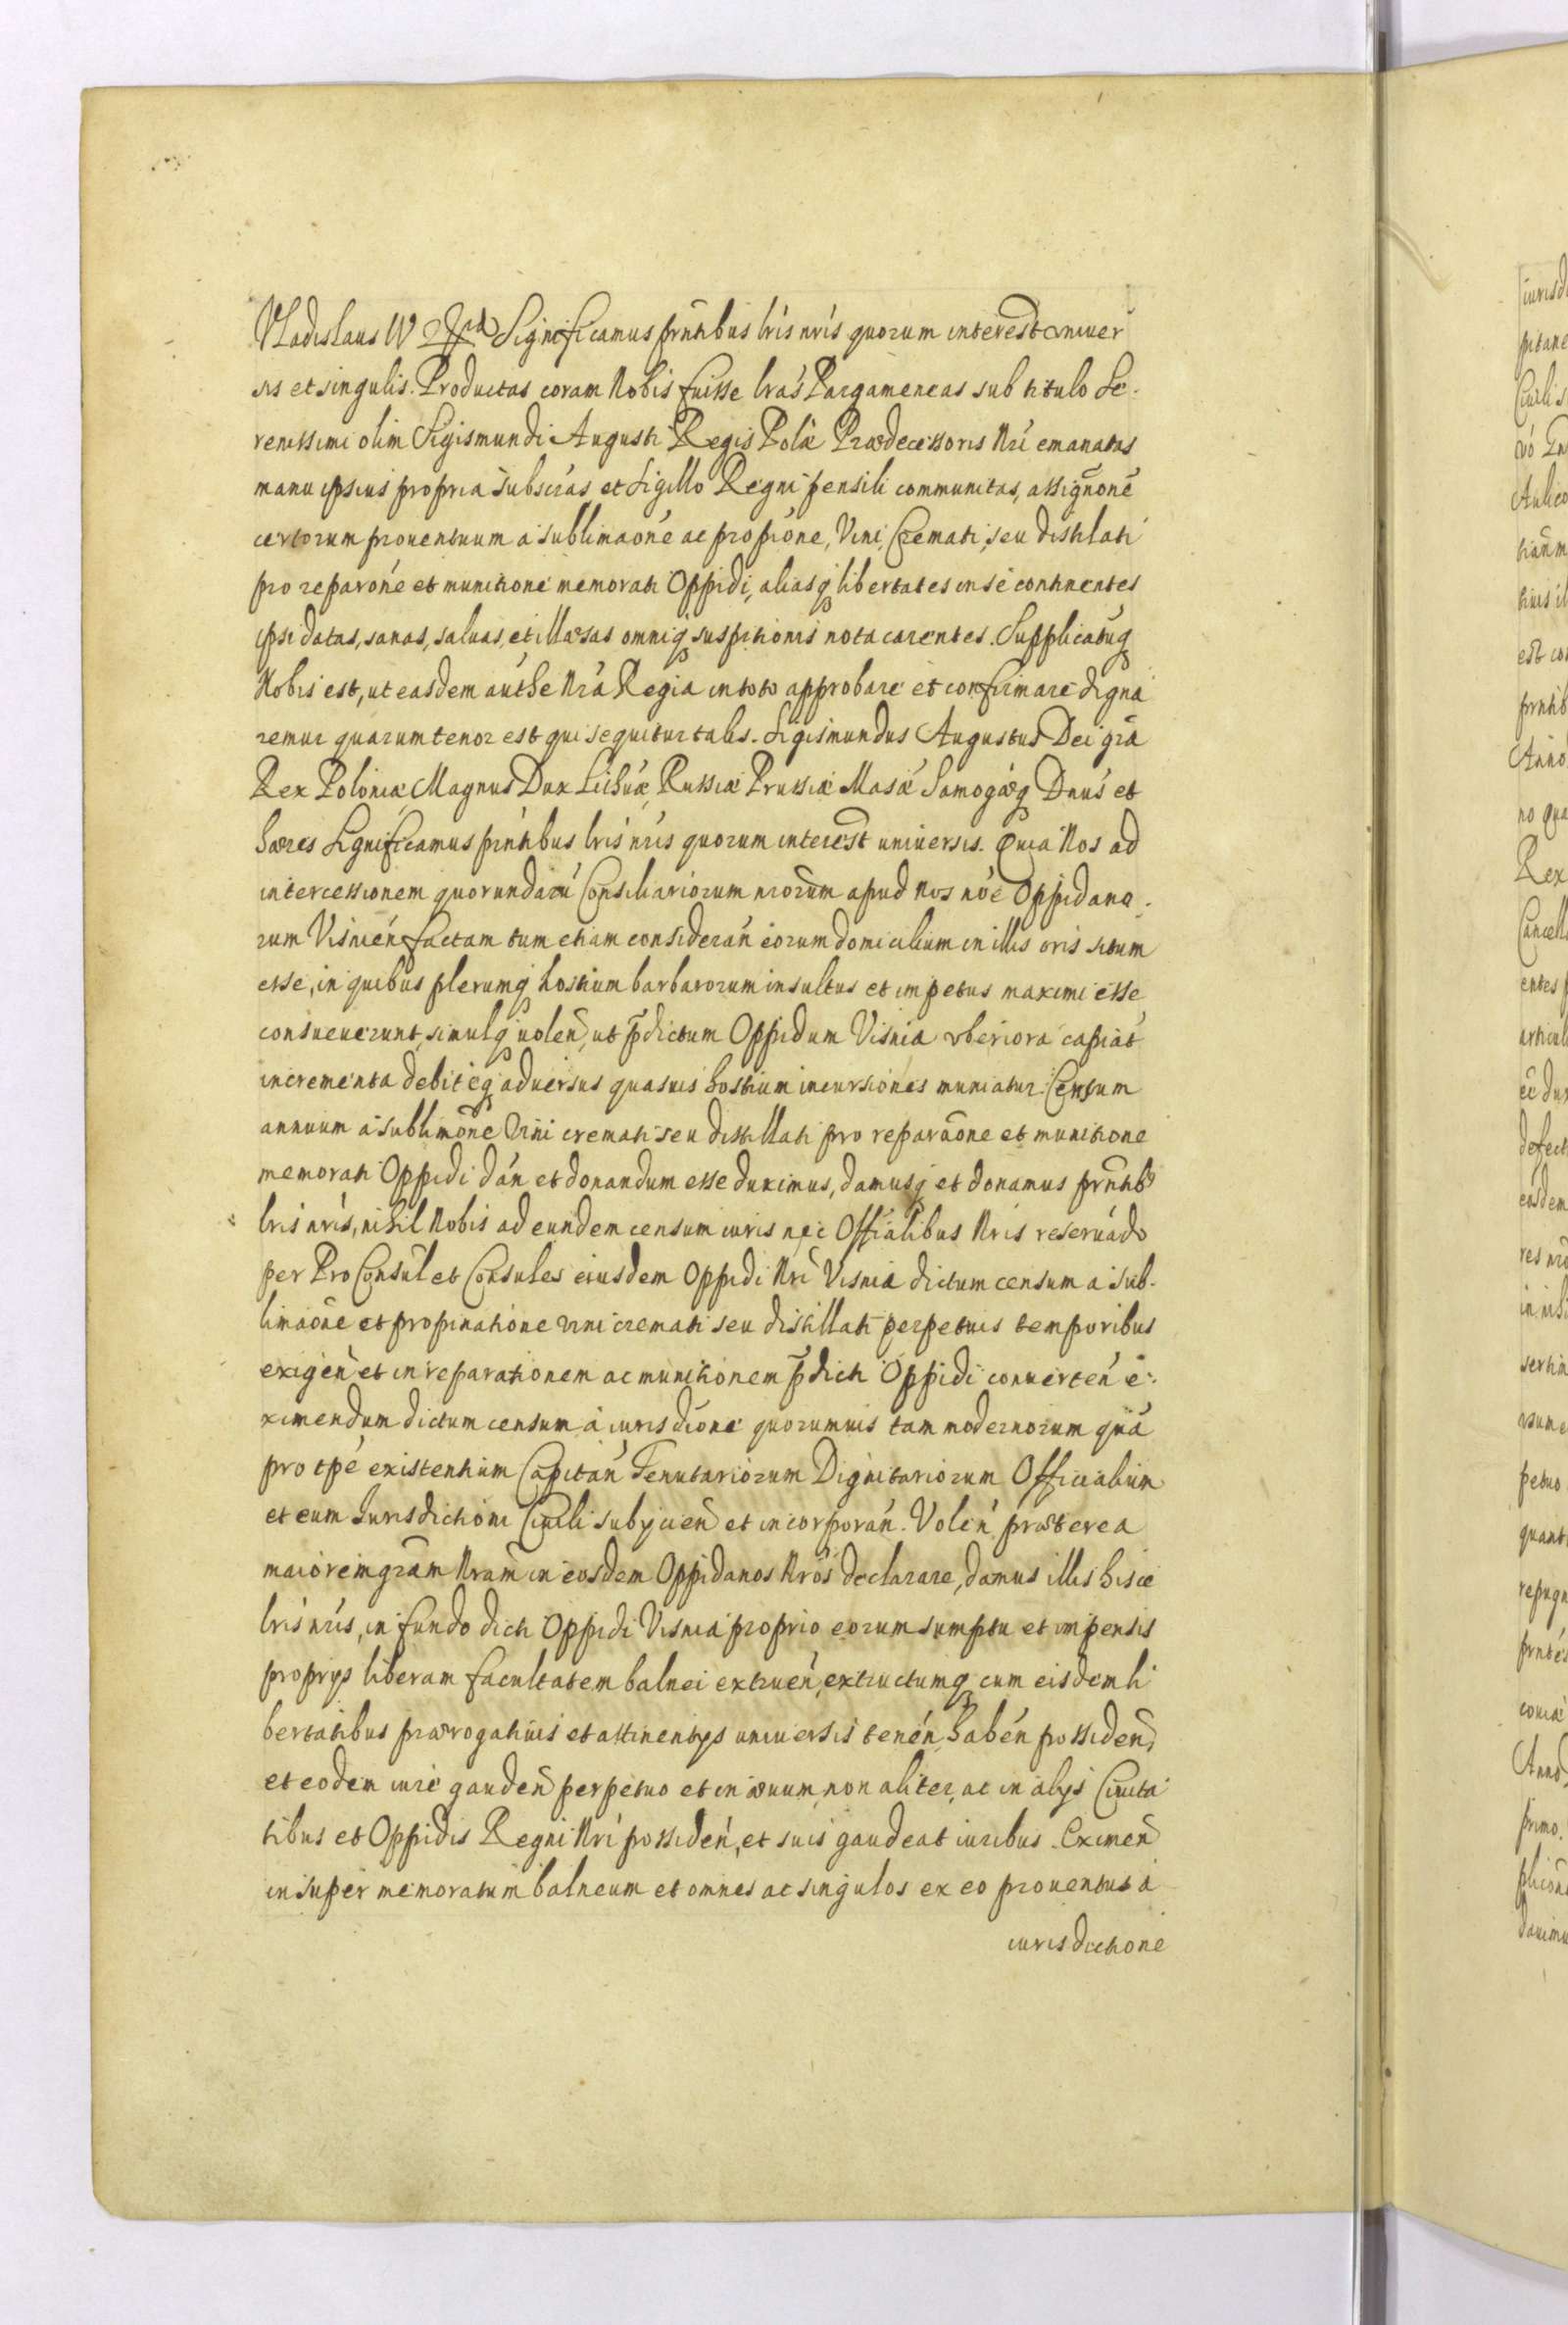 Vladislaus IV Significamus prntibus lris nris quorum interest univer
sis et singulis. Productas coram Nobis fuisse lras Pargameneas sub titulo Se-
renissimi olim Sigismundi Augusti Regis Polæ Prædecessoris Nri emanatas
manu ipsius propria subscras, et Sigillo Regni pensili communitas, assignone
certorum prouentuum a sublimaone ac propione, Vini, Cremati, seu distilati
pro reparone et munitione memorati Oppidi, aliasq libertates in se continentes
ipsi datas, sanas, saluas, et illæsas omniq suspitionis nota carentes. Supplicatuq
Nobis est, ut easdem authe Nra Regia in toto approbare et confirmare digna
remur quarum tenor est qui sequitur talis. Sigismundus Augustus Dei gra
Rex Poloniæ, Magnus Dux Lithuæ, Russiæ Prussiæ Masæ Samogæq Dnus et
hæres Significamus prntibus lris nris quorum interest universis. Quia Nos ad
intercessionem quorundaru Consiliariorum nrorum apud nos noe Oppidano-
rum Visnien factam tum etiam consideran eorum domicilium in illis oris situm
esse, in quibus plerumq hostium barbarorum insultus et impetus maximi esse
consueuerunt, simulq uolen, ut pdictum Oppidum Visnia vberiora capiat
incrementa debiteq aduersus quasuis hostium incursiones muniatur. Censum
annuum a sublimone Vini cremati seu distillati pro reparaone et munitione
memorati Oppidi dan et donandum esse duximus, damusq et donamus prntibs
lris nris, nihil Nobis ad eundem censum iuris nec Offialibus Nris reseruado
per ProConsul et Consules eiusdem Oppidi Nri Visnia dictum censum a sub-
limaone et propinatione vini cremati seu distillati perpetuis temporibus
exigen et in reparationem ac munitionem pdicti Oppidi conuerten e-
ximendum dictum censum a iurisdione quorumuis tam modernorum qua
pro tpe existentium Capitan Tenutariorum Dignitariorum Officialium
et eum Jurisdictioni Ciuili subijcien et incorporan. Volen præterea
maiorem gram Nram in eosdem Oppidanos Nros declarare, damus illis hisce
lris nris, in fundo dicti Oppidi Visnia proprio eorum sumptu et impensis
proprys liberam facultatem balnei extruen, extructumq cum eisdem li
bertatibus prærogatiuis et attinentys uniuersis tenen, haben possiden,
et eodem iure gauden perpetuo et in æuum, non aliter, ac in alys Ciuita
tibus et Oppidis Regni Nri possiden, et suis gaudeat iuribus. Eximen
insuper memoratum balneum et omnes ac singulos ex eo prouentus a
iurisdictione